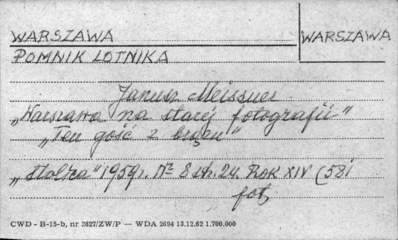 WARSZAWA WARSZAWA
POMNIK LOTNIKA
Janusz Meissner
„Warszawa na starej fotografii"
„Ten gość z brązu"
„Stolica" 1959 r. Nr 8 str. 24 Rok XIV (58)
fot.
CWD - B-15-b, nr 2827/ZW/P — WDA 2694 13.12.62 1.700.000